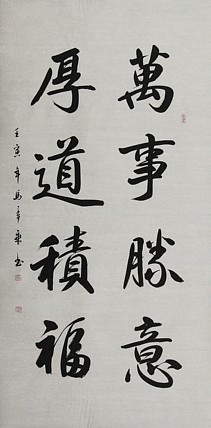 萬事勝意
厚道積福
壬寅年馬